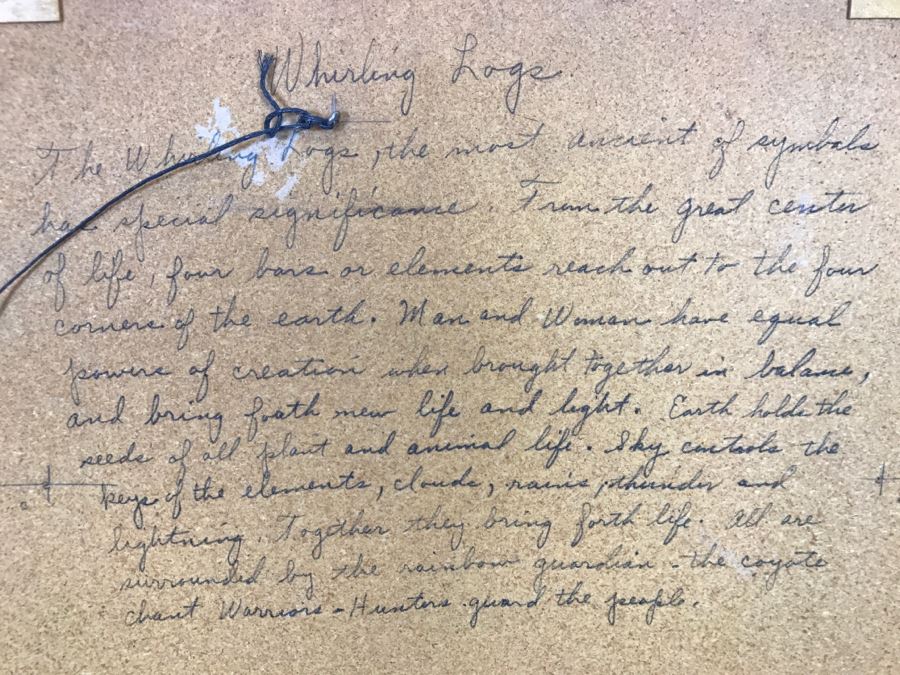 Whirling Logs
The Whirling Logs, the most ancient of symbals
has special significance. From the great center
of life, four bars or elements reach out to the four
corners of the earth. Man and Woman have equal
powers of creation when brought together in balance,
and bring foath new life and light. Earth holds the
seeds of all plant and animal life. Sky controls the
keys of the elements, clouds, rains, thunder and
lightning. Together they bring forth life. All are
surrounded by the rainbow guardian - the coyote
chant Warriors - Hunters guard the people.